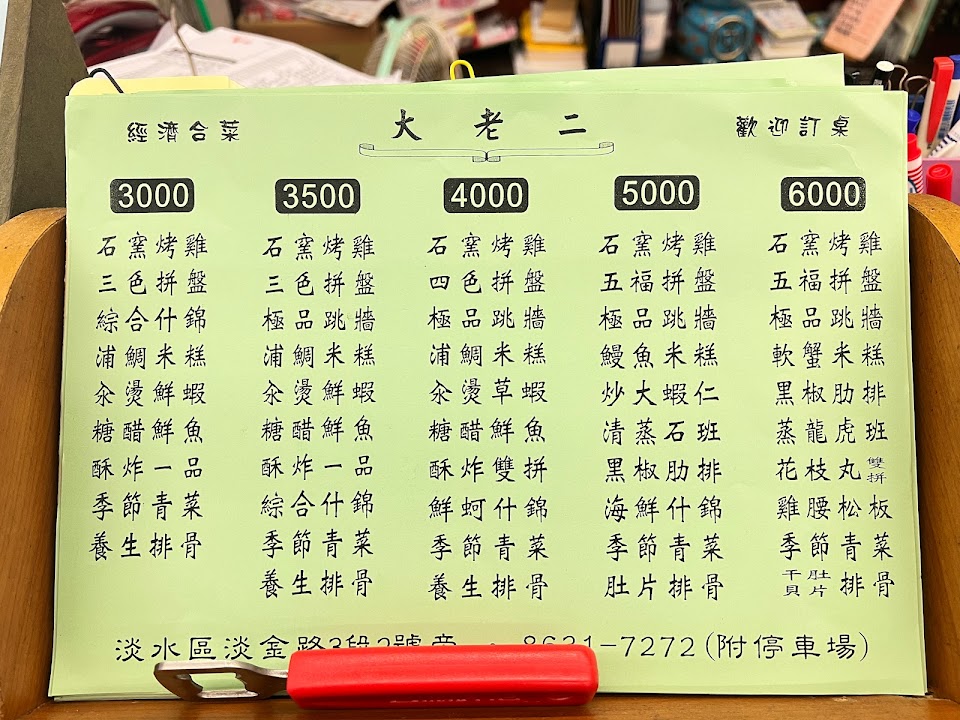 經濟合菜
大老二
歡迎訂桌
3000
石窯烤雞
三色拼盤
綜合什錦
浦鯛米糕
汆燙鮮蝦
糖醋鮮魚
酥炸一品
季節青菜
養生排骨
3500
石窯烤雞
三色拼盤
極品跳牆
浦鯛米糕
汆燙鮮蝦
糖醋鮮魚
酥炸一品
綜合什錦
季節青菜
養生排骨
4000
石窯烤雞
四色拼盤
極品跳牆
浦鯛米糕
汆燙草蝦
糖醋鮮魚
酥炸雙拼
鮮蚵什錦
季節青菜
養生排骨
5000
石窯烤雞
五福拼盤
極品跳牆
鰻魚米糕
炒大蝦仁
清蒸石班
黑椒肋排
海鮮什錦
季節青菜
肚片排骨
6000
石窯烤雞
五福拼盤
極品跳牆
軟蟹米糕
黑椒肋排
蒸龍虎班
花枝丸雙拼
雞腰松板
季節青菜
干貝肚片排骨
淡水區淡金路3段2號旁 8631-7272(附停車場)